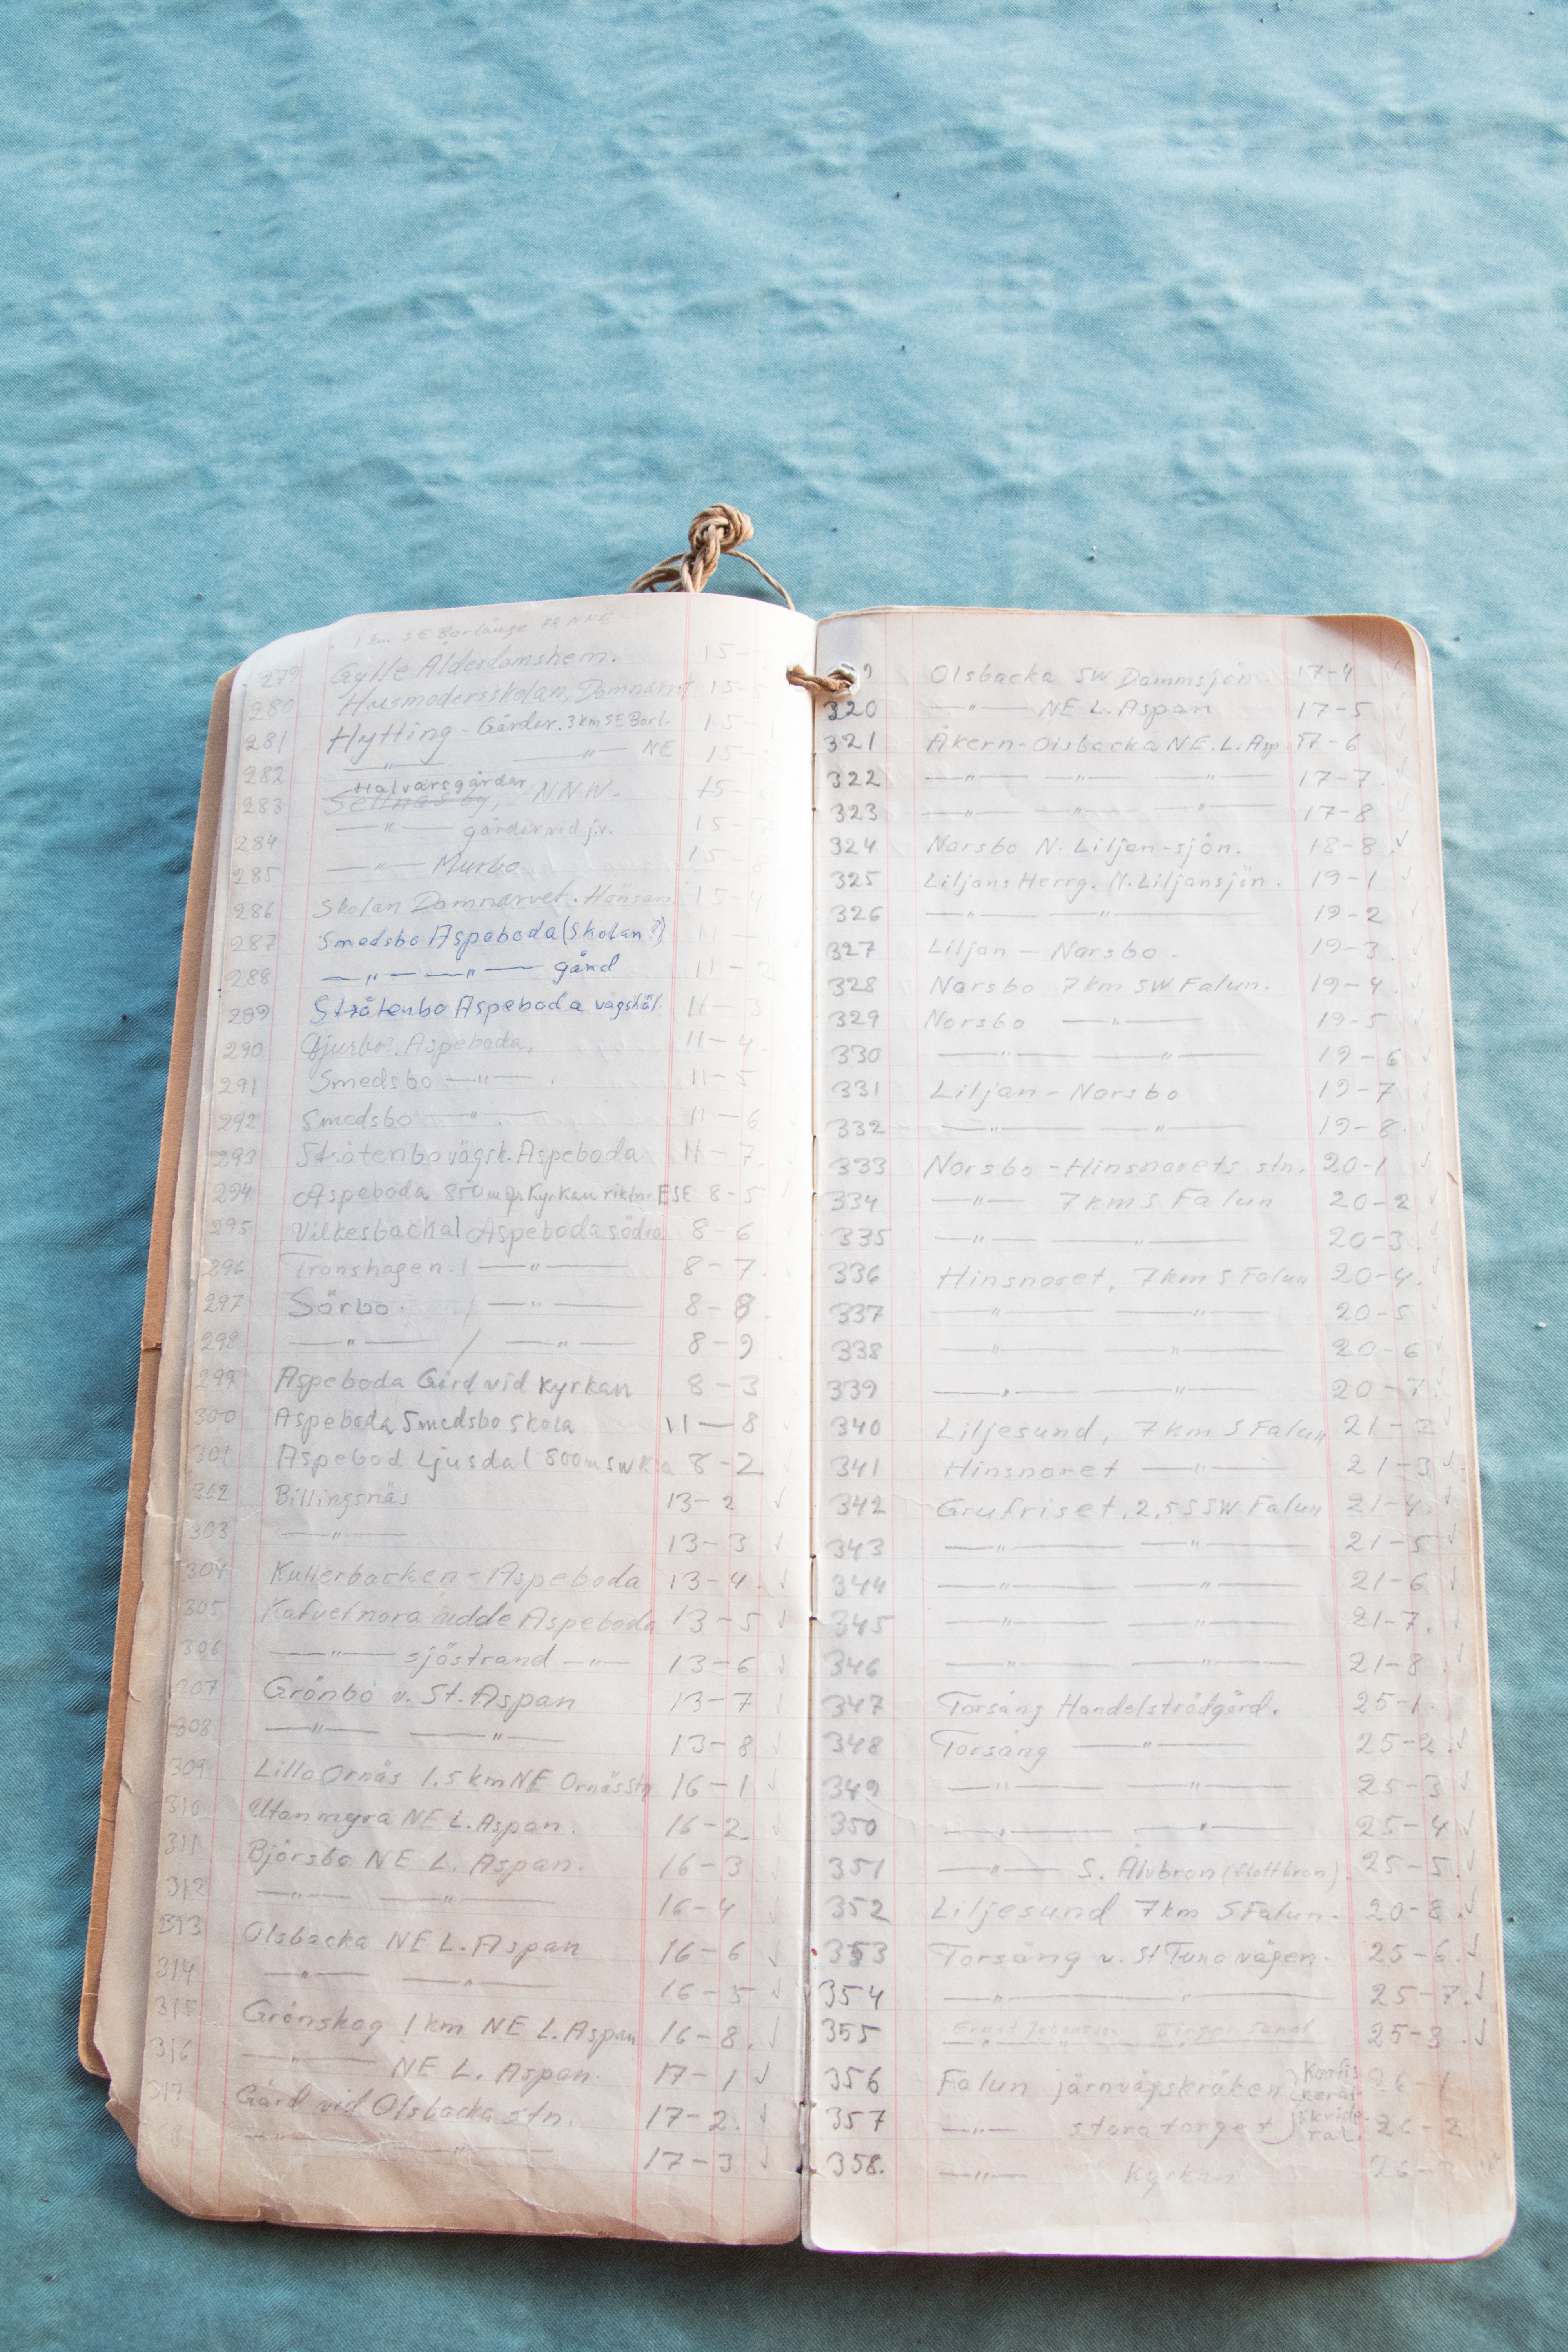 1 km SE Borlänge
279 Gylle Ålderdomshem. 15-
280 Husmodersskolan, Domnarvet 15-5
281 Hytting - Gårdar. 3 km SE Borl. 15-1
282 —"— —"— NE 15-
Halvarsgårdar
283 Sellnäs by, NNW. 15-
284 —"— gårdar vid j.v. 15-
285 —"— Murbo 15-8
286 Skolan Domnarvet. 15-4
287 Smedsbo Aspeboda (Skolan?) 11-
288 —"— —"— gård 11-2
289 Stråtenbo Aspeboda vägskäl 11-3
290 Aspeboda. 11-4
291 Smedsbo —"— 11-5
292 Smedsbo —"— 11-6
293 Stråtenbo vägsk. Aspeboda 11-7
294 Aspeboda 850 m fr Kyrkan riktn. ESE 8-5
295 Vilkesbacka / Aspeboda södra 8-6
296 Tronshagen. / —"— 8-7
297 Sörbo. / —"— 8-8
298 —"— / —"— 8-9
299 Aspeboda Gård vid Kyrkan 8-3
300 Aspeboda Smedsbo Skola 11-8
301 Aspebod Ljusdal 800 m SW 8-2
302 Billingsnäs 13-2 ✓
303 —"— 13-3 ✓
304 Kullerbacken - Aspeboda 13-4. ✓
305 Kafvelnora udde Aspeboda 13-5 ✓
306 —"— sjöstrand —"— 13-6 ✓
307 Grönbo v. St. Aspan 13-7 ✓
308 —"— —"— 13-8 ✓
309 Lilla Ornäs 1.5 km NE Ornäs Stn 16-1 ✓
310 Utanmyra NE L. Aspan. 16-2 ✓
311 Björsbo NE L. Aspan. 16-3 ✓
312 —"— —"— 16-4
313 Olsbacka NE L. Aspan 16-6 ✓
314 —"— —"— 16-5 ✓
315 Grönskog 1 km NE L. Aspan 16-8. ✓
316 —"— NE L. Aspan. 17-1 ✓
317 Gård vid Olsbacka stn. 17-2. ✓
—"— —"— 17-3 ✓
9 Olsbacka SW Dammsjön. 17-4 ✓
320 —"— NE L. Aspan 17-5 ✓
321 Åkern-Olsbacka NE. L. Asp. 17-6 ✓
322 —"— —"— —"— 17-7. ✓
323 —"— —"— —"— 17-8 ✓
324 Norsbo N. Liljan-sjön. 18-8. ✓
325 Liljans Herrg. N. Liljansjön. 19-1 ✓
326 —"— —"— 19-2 ✓
327 Liljan — Norsbo. 19-3 ✓
328 Norsbo 7 km SW Falun. 19-4. ✓
329 Norsbo —"— 19-5 ✓
330 —"— —"— 19-6 ✓
331 Liljan - Norsbo 19-7 ✓
332 —"— —"— 19-8. ✓
333 Norsbo - Hinsnorets stn. 20-1 ✓
334 —"— 7 km S Falun 20-2 ✓
335 —"— —"— 20-3. ✓
336 Hinsnoret, 7 km S Falun 20-4. ✓
337 —"— —"— 20-5 ✓
338 —"— —"— 20-6 ✓
339 —"— —"— 20-7. ✓
340 Liljesund, 7 km S Falun 21-2 ✓
341 Hinsnoret —"— 21-3 ✓
342 Grufriset, 2,5 SSW Falun 21-4. ✓
343 —"— —"— 21-5 ✓
344 —"— —"— 21-6 ✓
345 —"— —"— 21-7. ✓
346 —"— —"— 21-8. ✓
347 Torsång Handelsträdgård. 25-1.
348 Torsång —"— 25-2. ✓
349 —"— —"— 25-3 ✓
350 —"— —"— 25-4 ✓
351 —"— S. Älvbron (Flottbron). 25-5. ✓
352 Liljesund 7 km S Falun. 20-8. ✓
353 Torsång v. St Tuna vägen. 25-6. ✓
354 —"— —"— 25-7. ✓
355 —"— —"— 25-8. ✓
356 Falun järnvägskröken } Konfiskerar 26-1
357 —"— stora torget } 26-2
358. —"— Kyrkan 26-